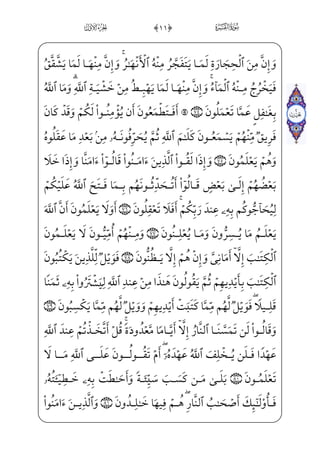 ﴿١١﴾
وَإِنَّ مِنَ ٱلْحِجَارَةِ لَمَا يَتَفَجَّرُ مِنْهُ ٱلْأَنْهَـٰرُ ۚ وَإِنَّ مِنْهَا لَمَا يَشَّقَّقُ
فَيَخْرُجُ مِنْهُ ٱلْمَآءُ ۚ وَإِنَّ مِنْهَا لَمَا يَهْبِطُ مِنْ خَشْيَةِ ٱللَّهِ ۗ وَمَا ٱللَّهُ
بِغَـٰفِلٍ عَمَّا تَعْمَلُونَ ﴿٧٤﴾ أَفَتَطْمَعُونَ أَن يُؤْمِنُوا۟ لَكُمْ وَقَدْ كَانَ
فَرِيقٌ مِّنْهُمْ يَسْمَعُونَ كَلَـٰمَ ٱللَّهِ ثُمَّ يُحَرِّفُونَهُۥ مِنۢ بَعْدِ مَا عَقَلُوهُ
وَهُمْ يَعْلَمُونَ ﴿٧٥﴾ وَإِذَا لَقُوا۟ ٱلَّذِينَ ءَامَنُوا۟ قَالُوٓا۟ ءَامَنَّا وَإِذَا خَلَا
بَعْضُهُمْ إِلَىٰ بَعْضٍ قَالُوٓا۟ أَتُحَدِّثُونَهُم بِمَا فَتَحَ ٱللَّهُ عَلَيْكُمْ
لِيُحَآجُّوكُم بِهِۦ عِندَ رَبِّكُمْ ۚ أَفَلَا تَعْقِلُونَ ﴿٧٦﴾ أَوَلَا يَعْلَمُونَ أَنَّ ٱللَّهَ
يَعْلَمُ مَا يُسِرُّونَ وَمَا يُعْلِنُونَ ﴿٧٧﴾ وَمِنْهُمْ أُمِّيُّونَ لَا يَعْلَمُونَ
ٱلْكِتَـٰبَ إِلَّآ أَمَانِىَّ وَإِنْ هُمْ إِلَّا يَظُنُّونَ ﴿٧٨﴾ فَوَيْلٌ لِّلَّذِينَ يَكْتُبُونَ
ٱلْكِتَـٰبَ بِأَيْدِيهِمْ ثُمَّ يَقُولُونَ هَـٰذَا مِنْ عِندِ ٱللَّهِ لِيَشْتَرُوا۟ بِهِۦ ثَمَنًا
قَلِيلًا ۖ فَوَيْلٌ لَّهُم مِّمَّا كَتَبَتْ أَيْدِيهِمْ وَوَيْلٌ لَّهُم مِّمَّا يَكْسِبُونَ ﴿٧٩﴾
وَقَالُوا۟ لَن تَمَسَّنَا ٱلنَّارُ إِلَّآ أَيَّامًا مَّعْدُودَةً ۚ قُلْ أَتَّخَذْتُمْ عِندَ ٱللَّهِ
عَهْدًا فَلَن يُخْلِفَ ٱللَّهُ عَهْدَهُۥٓ ۖ أَمْ تَقُولُونَ عَلَى ٱللَّهِ مَا لَا
تَعْلَمُونَ ﴿٨٠﴾ بَلَىٰ مَن كَسَبَ سَيِّئَةً وَأَحَـٰطَتْ بِهِۦ خَطِيٓـَٔتُهُۥ
فَأُو۟لَـٰٓئِكَ أَصْحَـٰبُ ٱلنَّارِ ۖ هُمْ فِيهَا خَـٰلِدُونَ ﴿٨١﴾ وَٱلَّذِينَ ءَامَنُوا۟